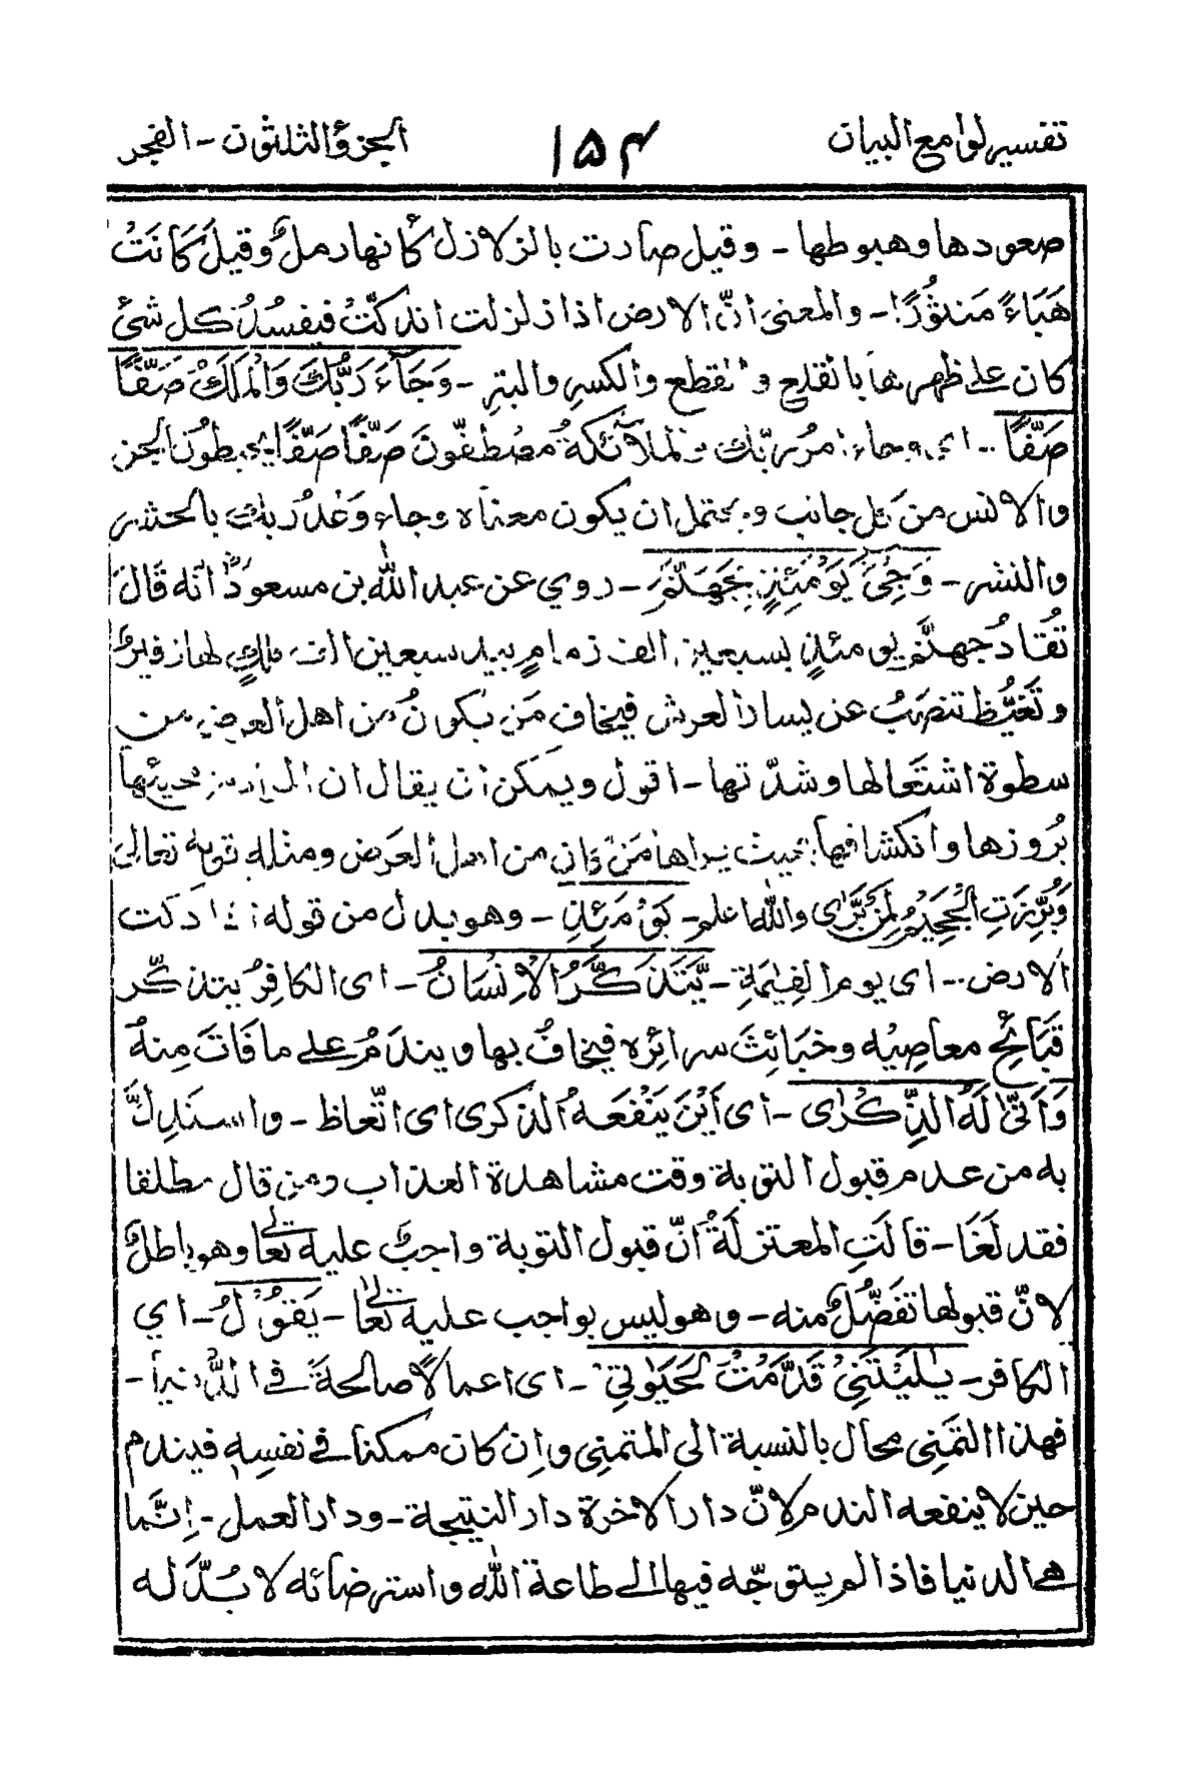 تفسير لوامع البيان ١٥٤ الجزء الثلثون - الفجر
صعودها وهبوطها - وقيل صارت بالزلازل كأنها رملٌ وقيل كَانَتْ
هَبَاءً مَنثُورًا - والمعنى انّ الارض اذا زلزلت اندكّتْ فيفسُدُ كل شئ
كان على ظهرها بالقلع والقطع والكسر والبتر - وَجَآءَ رَبُّكَ وَالْمَلَكُ صَفًّا
صَفًّا - اي وجاء امر ربّك والملآئكةُ مصْطفّونَ صَفًّا صَفًّا يحيطُون الجن
والانس من كل جانب ويحتمل ان يكون معناه وجاء وَعْدُ ربك بالحشر
والنشر - وَجِئَ يَوْمَئِذٍ بِجَهَنَّمَ - روي عن عبد الله بن مسعودؓ انه قَالَ
تُقَادُ جهنّم يومئذٍ بسبعين الف زمامٍ بيد سبعين الف ملكٍ لها زفيرٌ
وتَغَيُّظ تنصَبُ عن يسار العرش فيخاف مَن يكون من اهل العرض من
سطوة اشتعالها وشدّتها - اقول ويمكن ان يقال ان المراد من مجيئها
بُروزها وانكشافها بحيث يراها مَنْ كان من اهل العَرض ومثله قوله تعالىٰ
وَبُرِّزَتِ الْجَحِيْمُ لِمَنْ يَّرٰى والله اعلم - يَوْمَئِذٍ - وهو بدل من قوله اذا دكت
الارض - اى يوم القِيٰمَةِ - يَّتَذَكَّرُ الْاِنْسَانُ - اى الكافِرُ يتذكّر
قَبَائحَ معاصِيْه وخبَائِثَ سرائِره فيخافُ بها ويندَمُ على ما فَاتَ مِنهُ
وَاَنّٰى لَهُ الذِّكْرٰى - اى اَيْنَ يَنْفَعهُ الذكرى اى اتّعاظ - واستدِلَّ
به من عدم قبول التوبة وقت مشاهدة العذاب ومن قال مطلقا
فقد لَغَا - قالَتِ المعتزلَةُ انّ قبول التوبة واجبٌ عليه تعالىٰ وهو باطلٌ
لانّ قبولها تفَضُّلٌ منه - وهو ليس بواجب عليه تعالىٰ - يَقُوْلُ - اي
الكافر - يٰلَيْتَنِيْ قَدَّمْتُ لِحَيَاتِيْ - اى اعمالًا صالحةً فى الدُّنيا -
فهذا التمَنِى محال بالنسبة الى المتمنِى واِن كان ممكنا فى نفسِه فيندم
حين لا ينفعه الندم لانّ دار الاخرة دار النتيجة - ودار العمل - اِنَّما
هى الدنيا فاذا لم يتوجّه فيها الى طاعة الله واسترضائه لا بُدَّ له